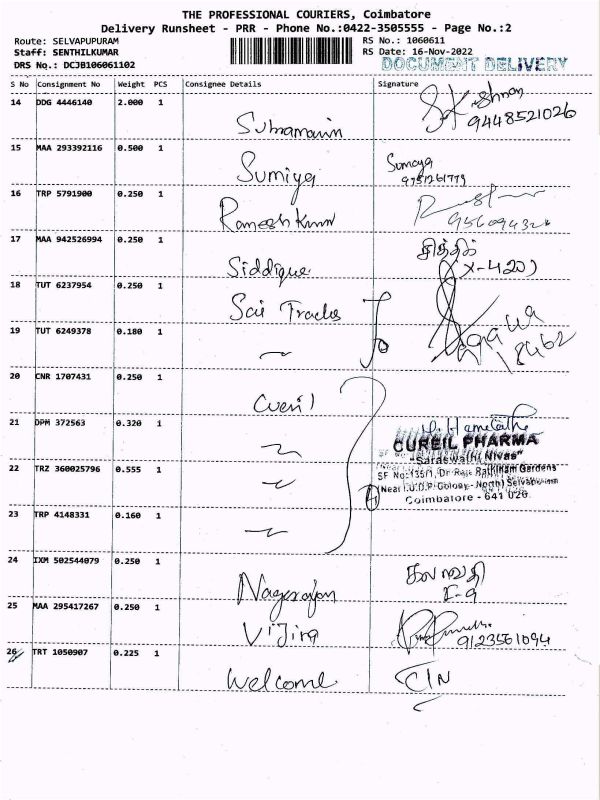 THE PROFESSIONAL COURIERS, Coimbatore
Delivery Runsheet - PRR - Phone No.:0422-3505555 - Page No.:2
Route: SELVAPUPURAM
Staff: SENTHILKUMAR
DRS No.: DCJB106061102
RS No.: 1060611
RS Date: 16-Nov-2022
DOCUMENT DELIVERY
S No Consignment No Weight PCS Consignee Details Signature
14 DDG 4446140 2.000 1
9448521026
15 MAA 293392116 0.500 1 Sumiya Sumaya
16 TRP 5791900 0.250 1 Ramesh Kumar
17 MAA 942526994 0.250 1 Siddique சித்திக்
18 TUT 6237954 0.250 1 Sai Trades
19 TUT 6249378 0.180 1
18462
20 CNR 1707431 0.250 1
21 DPM 372563 0.320 1
CUREIL PHARMA
"Saraswathi Nivas"
SF No:135/1, Dr. Raja Rathinam Gardens
(Near T.U.D.P. Colony - North) Selvapuram
Coimbatore - 641 026.
22 TRZ 360025796 0.555 1
23 TRP 4148331 0.160 1
24 IXM 502544079 0.250 1 Nagarajan கலாவதி
I-9
25 MAA 295417267 0.250 1 Vijira
9123561094
26 TRT 1050907 0.225 1 Welcome